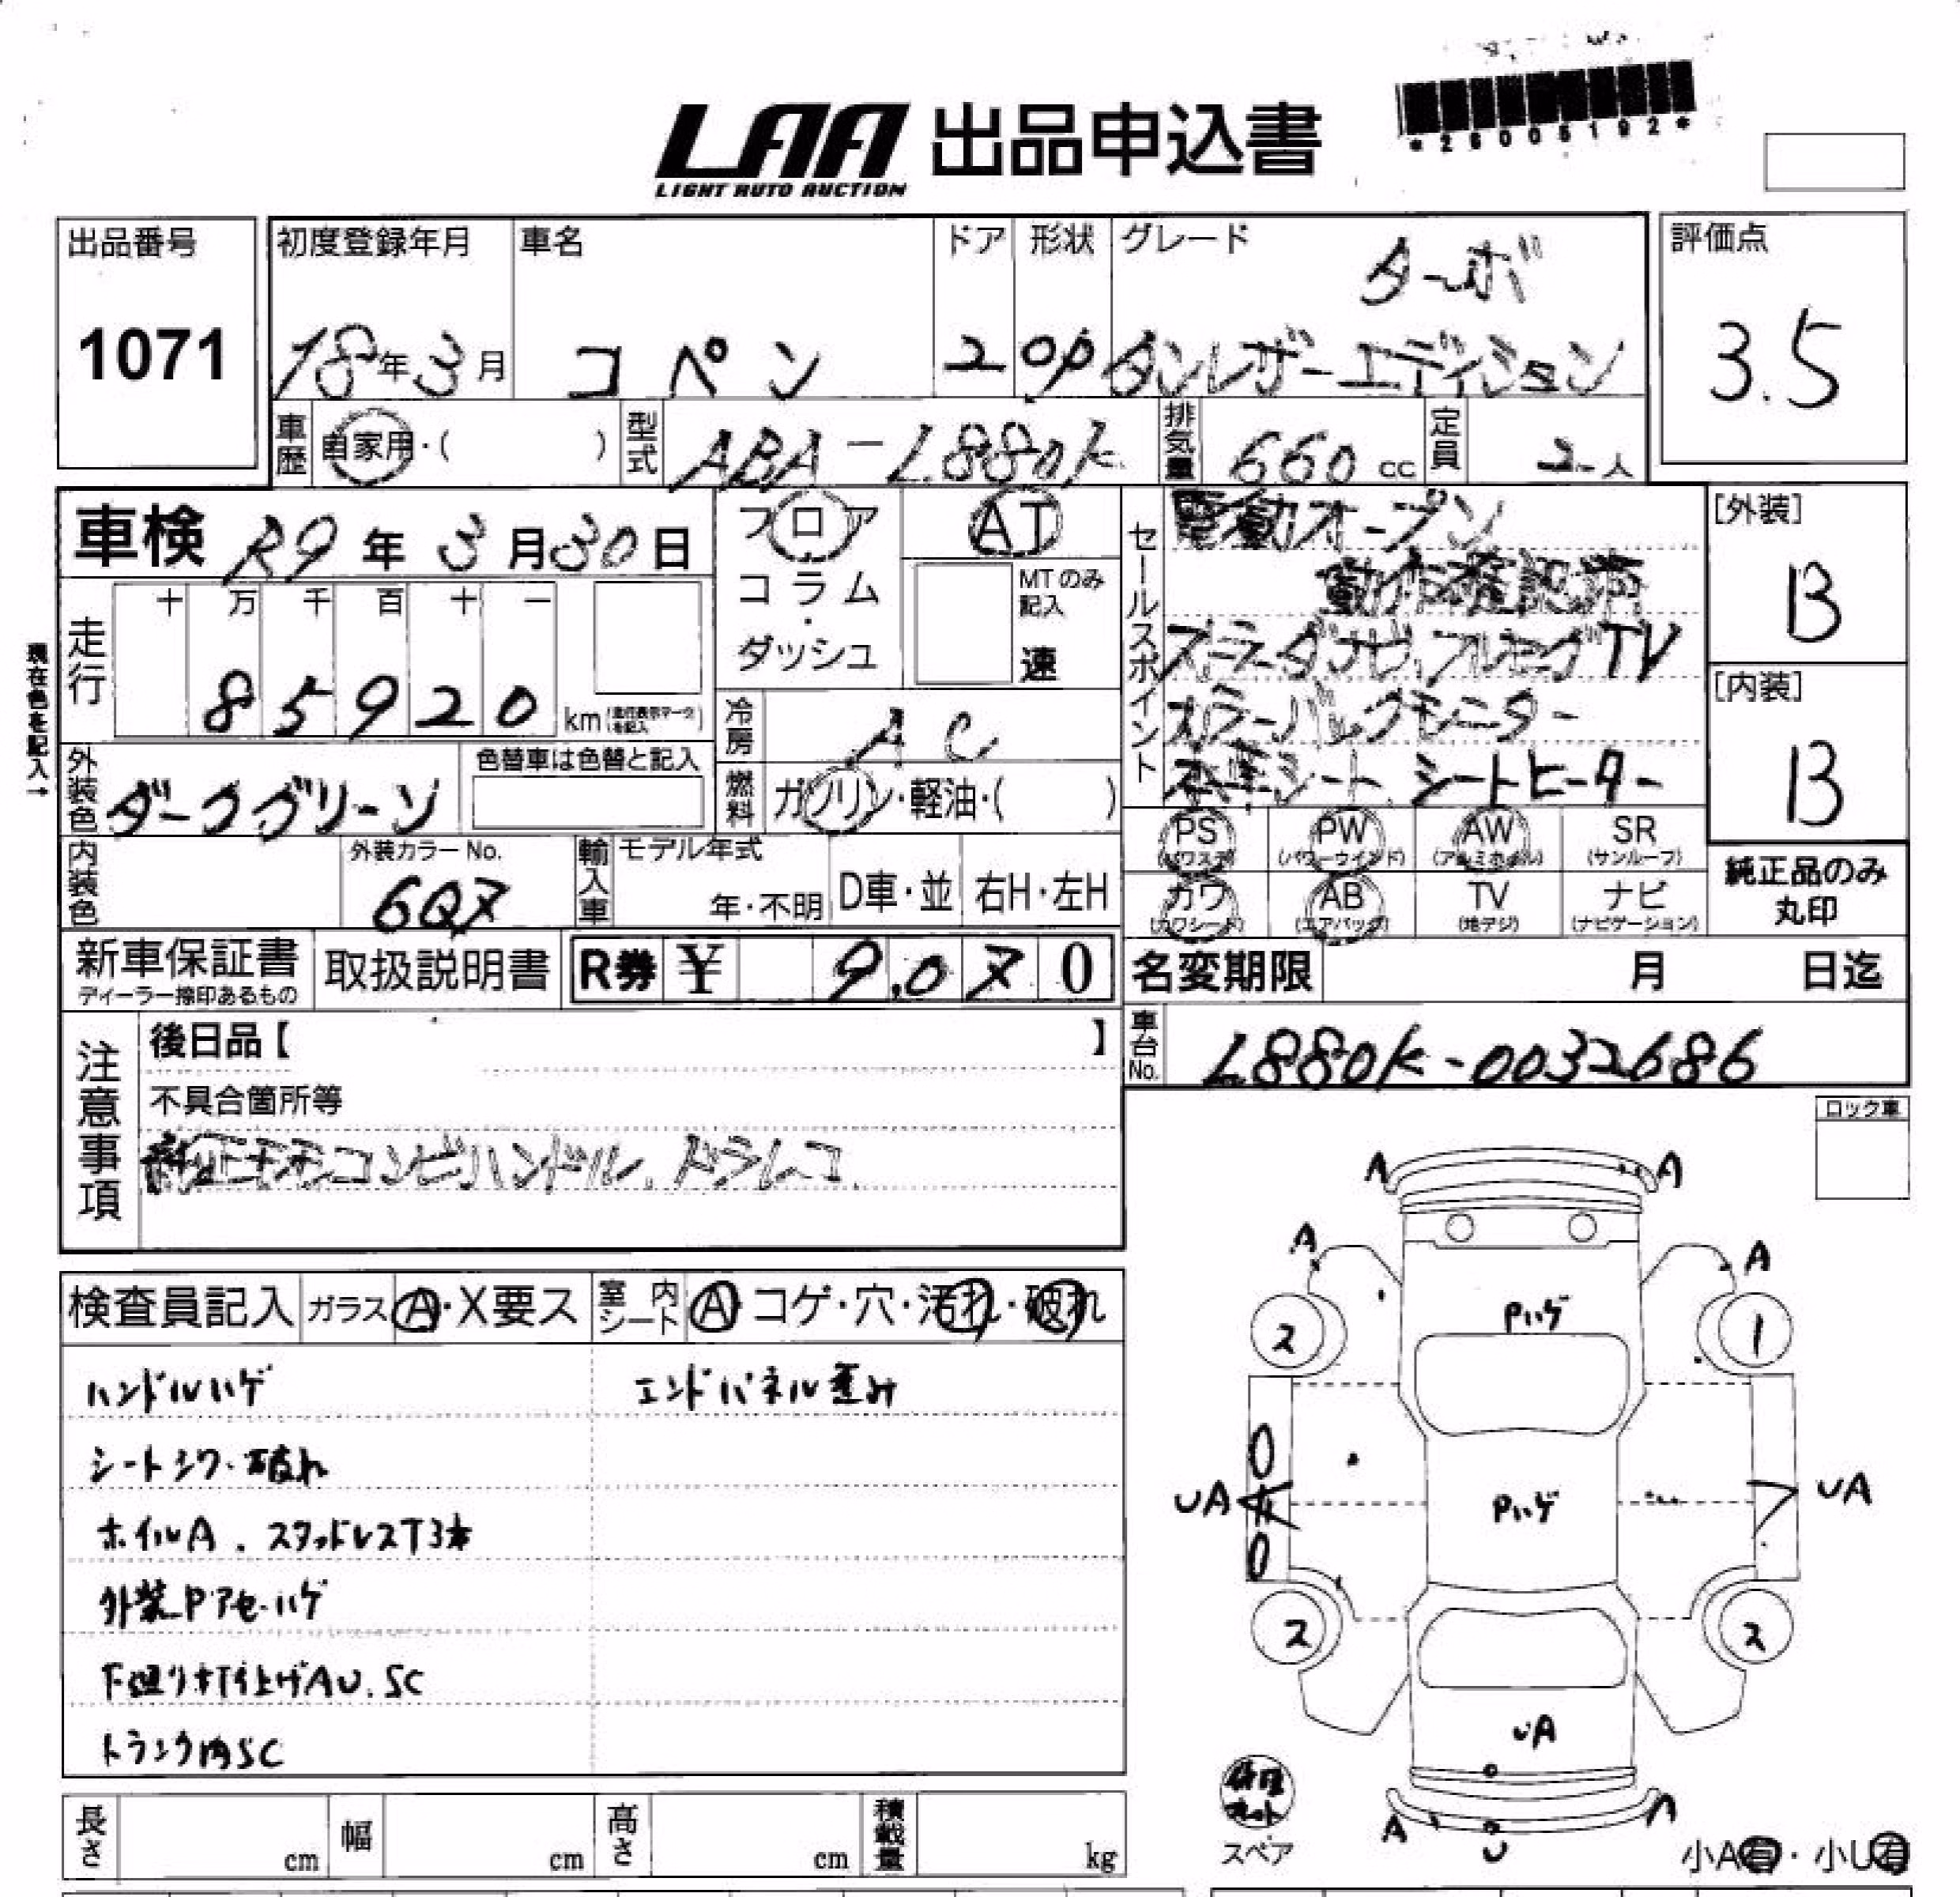 LAA 出品申込書
LIGHT AUTO AUCTION
*26005192*
出品番号
1071
初度登録年月
18年3月
車名
コペン
ドア
2
形状
OP
グレード
ターボ
タンレザーエディション
評価点
3.5
車歴
自家用・( )
型式
ABA-L880K
排気量
660 cc
定員
2人
車検 R9年3月30日
フロア
コラム
・
ダッシュ
AT
MTのみ
記入
速
セールスポイント
電動オープン
動作確認済
フルセグTV
バックモニター
シート、シートヒーター
[外装]
B
[内装]
B
現在色を記入→
走行
十 万 千 百 十 一
85920 km
冷房
AC
外装色
ダークグリーン
色替車は色替と記入
燃料
ガソリン・軽油・( )
内装色
外装カラーNo.
6Q7
輸入車
モデル年式
年・不明
D車・並
右H・左H
PS
(パワステ)
PW
(パワーウインド)
AW
(アルミホイル)
SR
(サンルーフ)
カワ
(カワシート)
AB
(エアバッグ)
TV
(地デジ)
ナビ
(ナビゲーション)
純正品のみ
丸印
新車保証書
ディーラー捺印あるもの
取扱説明書
R券 ¥ 9,070
名変期限 月 日迄
車台No.
L880K-0032686
注意事項
後日品【 】
不具合箇所等
純正モモコンビハンドル、ドラレコ
ロック車
検査員記入
ガラス A・X要ス
室内シート A・コゲ・穴・汚れ・破れ
ハンドルハゲ
エンドパネル歪み
シートシワ・破れ
ホイルA、スタッドレスT3本
外装Pアセ・ハゲ
下廻り打上げAU、SC
トランク内SC
A
A
A
A
Pハゲ
2
1
UA
Pハゲ
UA
2
2
UA
A
A
U
修理キット
スペア
小A有・小U有
長さ cm
幅 cm
高さ cm
積載量 kg